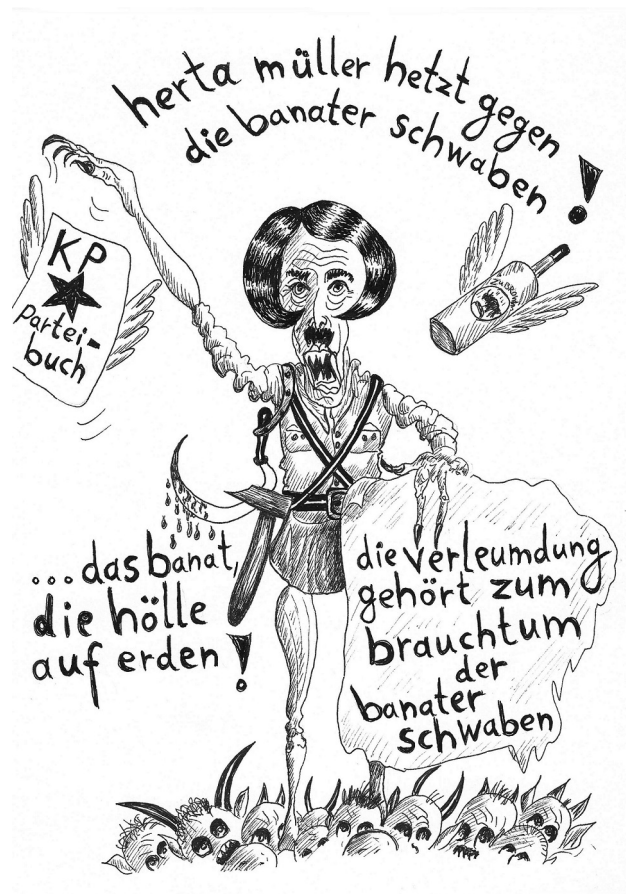 herta müller hetzt gegen
die banater schwaben!
KP
partei-
buch
...das banat,
die hölle
auf erden!
die verleumdung
gehört zum
brauchtum
der
banater
schwaben